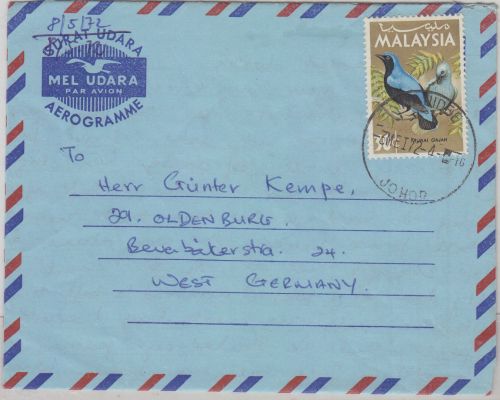 8/5/72
SURAT UDARA
MEL UDARA
PAR AVION
AEROGRAMME
مليسيا
MALAYSIA
30c
MURAI GAJAH
MEI 72-4
JOHOR
To
Herr Günter Kempe,
29. OLDENBURG
Beverbäkerstra. 24.
WEST GERMANY.